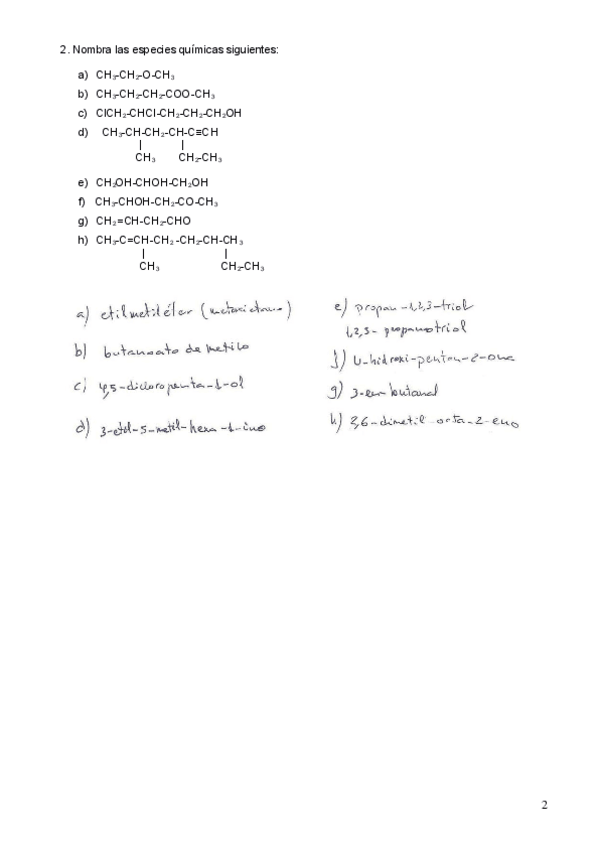 2. Nombra las especies químicas siguientes:
a) CH₃-CH₂-O-CH₃
b) CH₃-CH₂-CH₂-COO-CH₃
c) ClCH₂-CHCl-CH₂-CH₂-CH₂OH
d) CH₃-CH-CH₂-CH-C≡CH
| |
CH₃ CH₂-CH₃
e) CH₂OH-CHOH-CH₂OH
f) CH₃-CHOH-CH₂-CO-CH₃
g) CH₂=CH-CH₂-CHO
h) CH₃-C=CH-CH₂-CH₂-CH-CH₃
| |
CH₃ CH₂-CH₃
a) etilmetiléter (metoxietano)
b) butanoato de metilo
c) 4,5-dicloropenta-1-ol
d) 3-etil-5-metil-hexa-1-ino
e) propan-1,2,3-triol
1,2,3-propanotriol
f) 4-hidroxi-pentan-2-ona
g) 3-en butanal
h) 2,6-dimetil-octa-2-eno
2